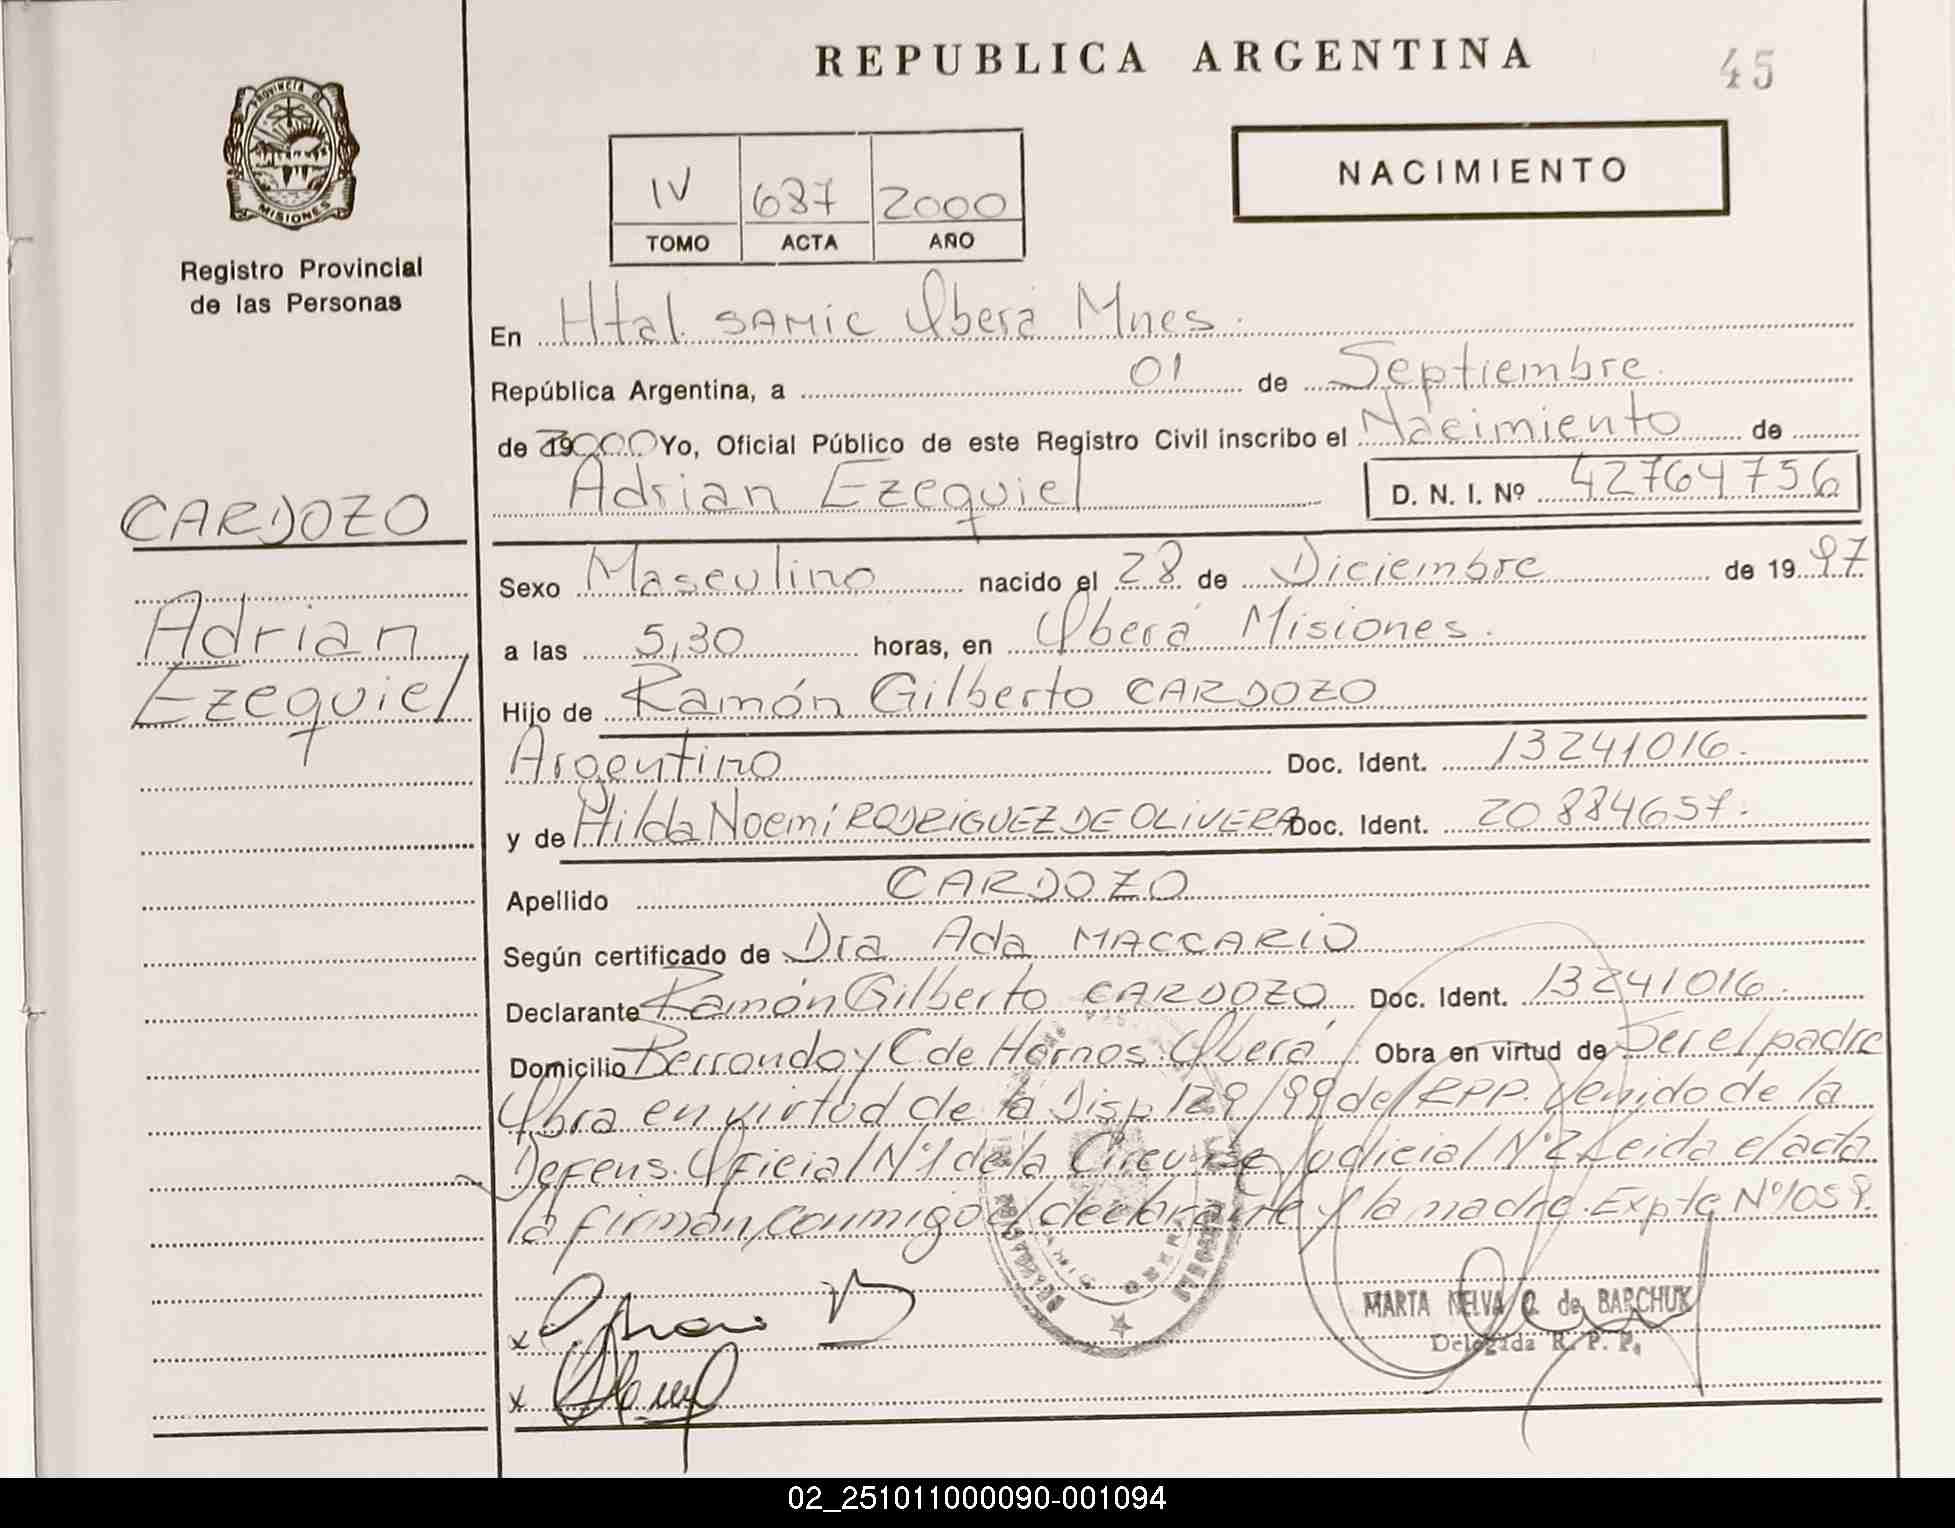 REPUBLICA ARGENTINA
45
PROVINCIA DE
MISIONES
Registro Provincial
de las Personas
IV 687 2000
TOMO ACTA AÑO
NACIMIENTO
En Htal. SAMIC Oberá Mnes.
República Argentina, a 01 de Septiembre.
de 2000 Yo, Oficial Público de este Registro Civil inscribo el Nacimiento de
Adrian Ezequiel D. N. I. Nº 42764756
CARDOZO
Adrian
Ezequiel
Sexo Masculino nacido el 28 de Diciembre de 1997
a las 5,30 horas, en Oberá Misiones.
Hijo de Ramón Gilberto CARDOZO
Argentino Doc. Ident. 13241016.
y de Hilda Noemi RODRIGUEZ DE OLIVERA Doc. Ident. 20884657.
Apellido CARDOZO
Según certificado de Dra Ada MACCARIO
Declarante Ramón Gilberto CARDOZO Doc. Ident. 13241016.
Domicilio Berrondo y C de Hornos. Oberá Obra en virtud de Ser el padre
Obra en virtud de la Disp 129/99 del RPP. venido de la
Defens. Oficial Nº1 de la Circunsc Judicial Nº2 Leida el acta
la firman conmigo el declarante y la madre. Expte Nº1059.
x
MARTA NELVA O. de BARCHUK
Delegada R. P. P.
x
02_251011000090-001094